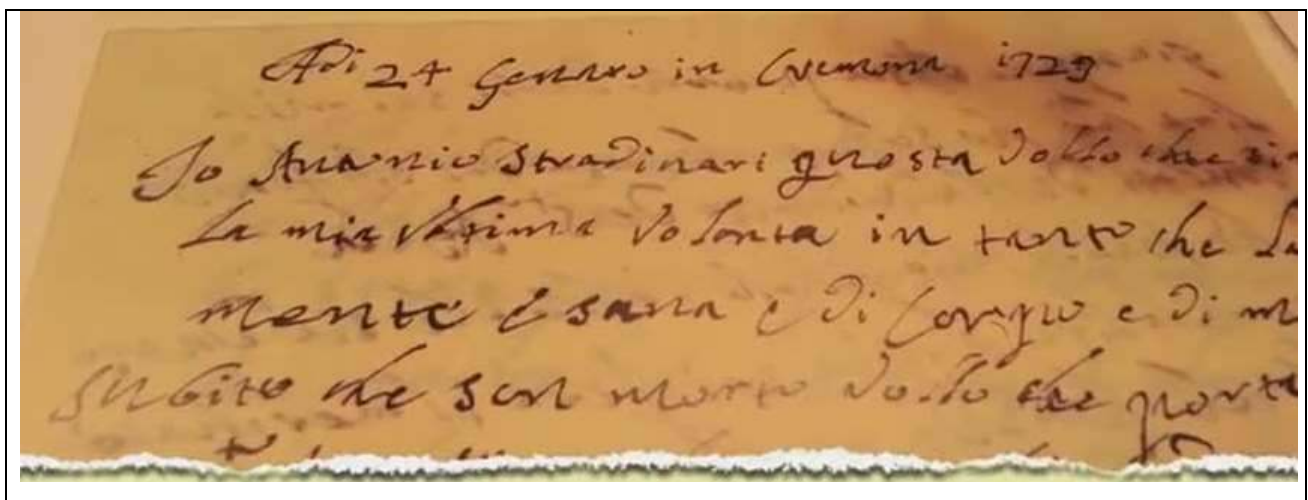 Adi 24 Genaro in Cremona 1729
Io Antonio Stradivari questa vollio che sia
La mia Vltima Volonta in tanto che La
mente è sana e di Corpo e di m
Subito che son morto vollio che porta